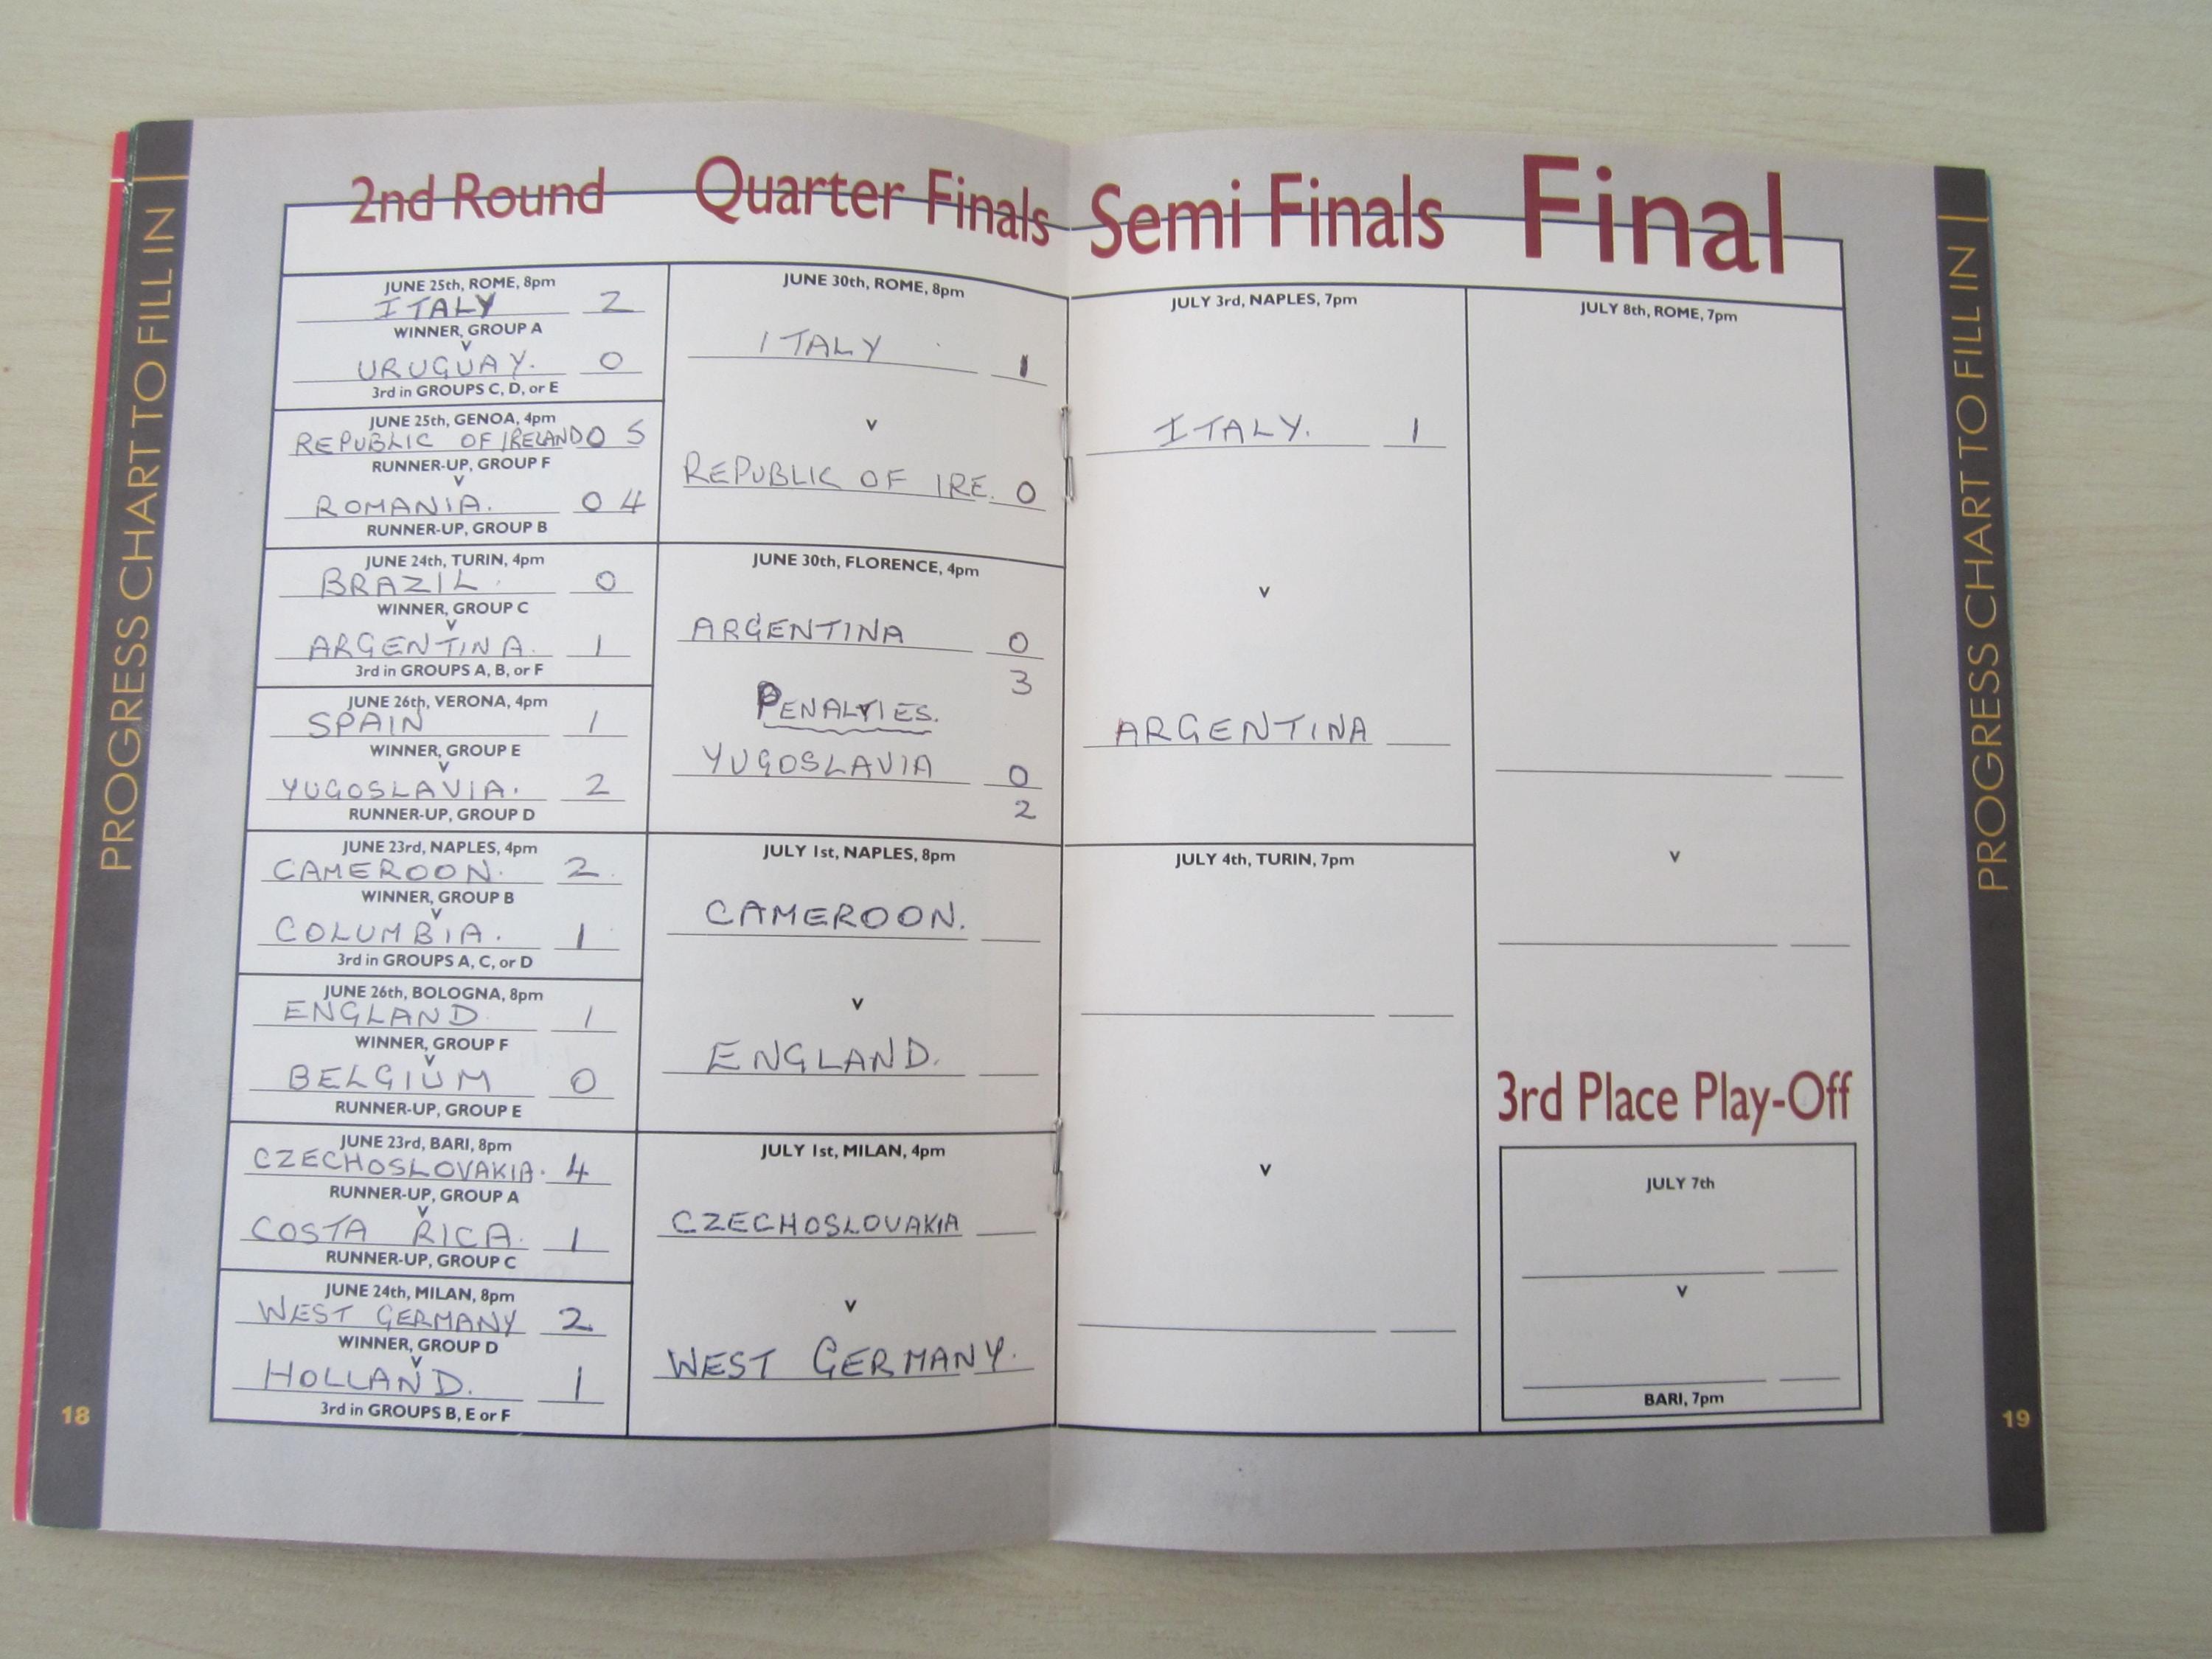 PROGRESS CHART TO FILL IN
2nd Round
JUNE 25th, ROME, 8pm
ITALY 2
WINNER, GROUP A
v
URUGUAY. 0
3rd in GROUPS C, D, or E
JUNE 25th, GENOA, 4pm
REPUBLIC OF IRELAND 0 5
RUNNER-UP, GROUP F
v
ROMANIA. 0 4
RUNNER-UP, GROUP B
JUNE 24th, TURIN, 4pm
BRAZIL. 0
WINNER, GROUP C
v
ARGENTINA. 1
3rd in GROUPS A, B, or F
JUNE 26th, VERONA, 4pm
SPAIN 1
WINNER, GROUP E
v
YUGOSLAVIA. 2
RUNNER-UP, GROUP D
JUNE 23rd, NAPLES, 4pm
CAMEROON. 2.
WINNER, GROUP B
v
COLUMBIA. 1
3rd in GROUPS A, C, or D
JUNE 26th, BOLOGNA, 8pm
ENGLAND. 1
WINNER, GROUP F
v
BELGIUM 0
RUNNER-UP, GROUP E
JUNE 23rd, BARI, 8pm
CZECHOSLOVAKIA. 4
RUNNER-UP, GROUP A
v
COSTA RICA. 1
RUNNER-UP, GROUP C
JUNE 24th, MILAN, 8pm
WEST GERMANY 2
WINNER, GROUP D
v
HOLLAND. 1
3rd in GROUPS B, E or F
18
Quarter Finals
JUNE 30th, ROME, 8pm
ITALY 1
v
REPUBLIC OF IRE. 0
JUNE 30th, FLORENCE, 4pm
ARGENTINA 0
3
PENALTIES.
YUGOSLAVIA 0
2
JULY 1st, NAPLES, 8pm
CAMEROON.
v
ENGLAND.
JULY 1st, MILAN, 4pm
CZECHOSLOVAKIA
v
WEST GERMANY.
Semi Finals
JULY 3rd, NAPLES, 7pm
ITALY. 1
v
ARGENTINA
JULY 4th, TURIN, 7pm
v
Final
JULY 8th, ROME, 7pm
v
3rd Place Play-Off
JULY 7th
v
BARI, 7pm
PROGRESS CHART TO FILL IN
19